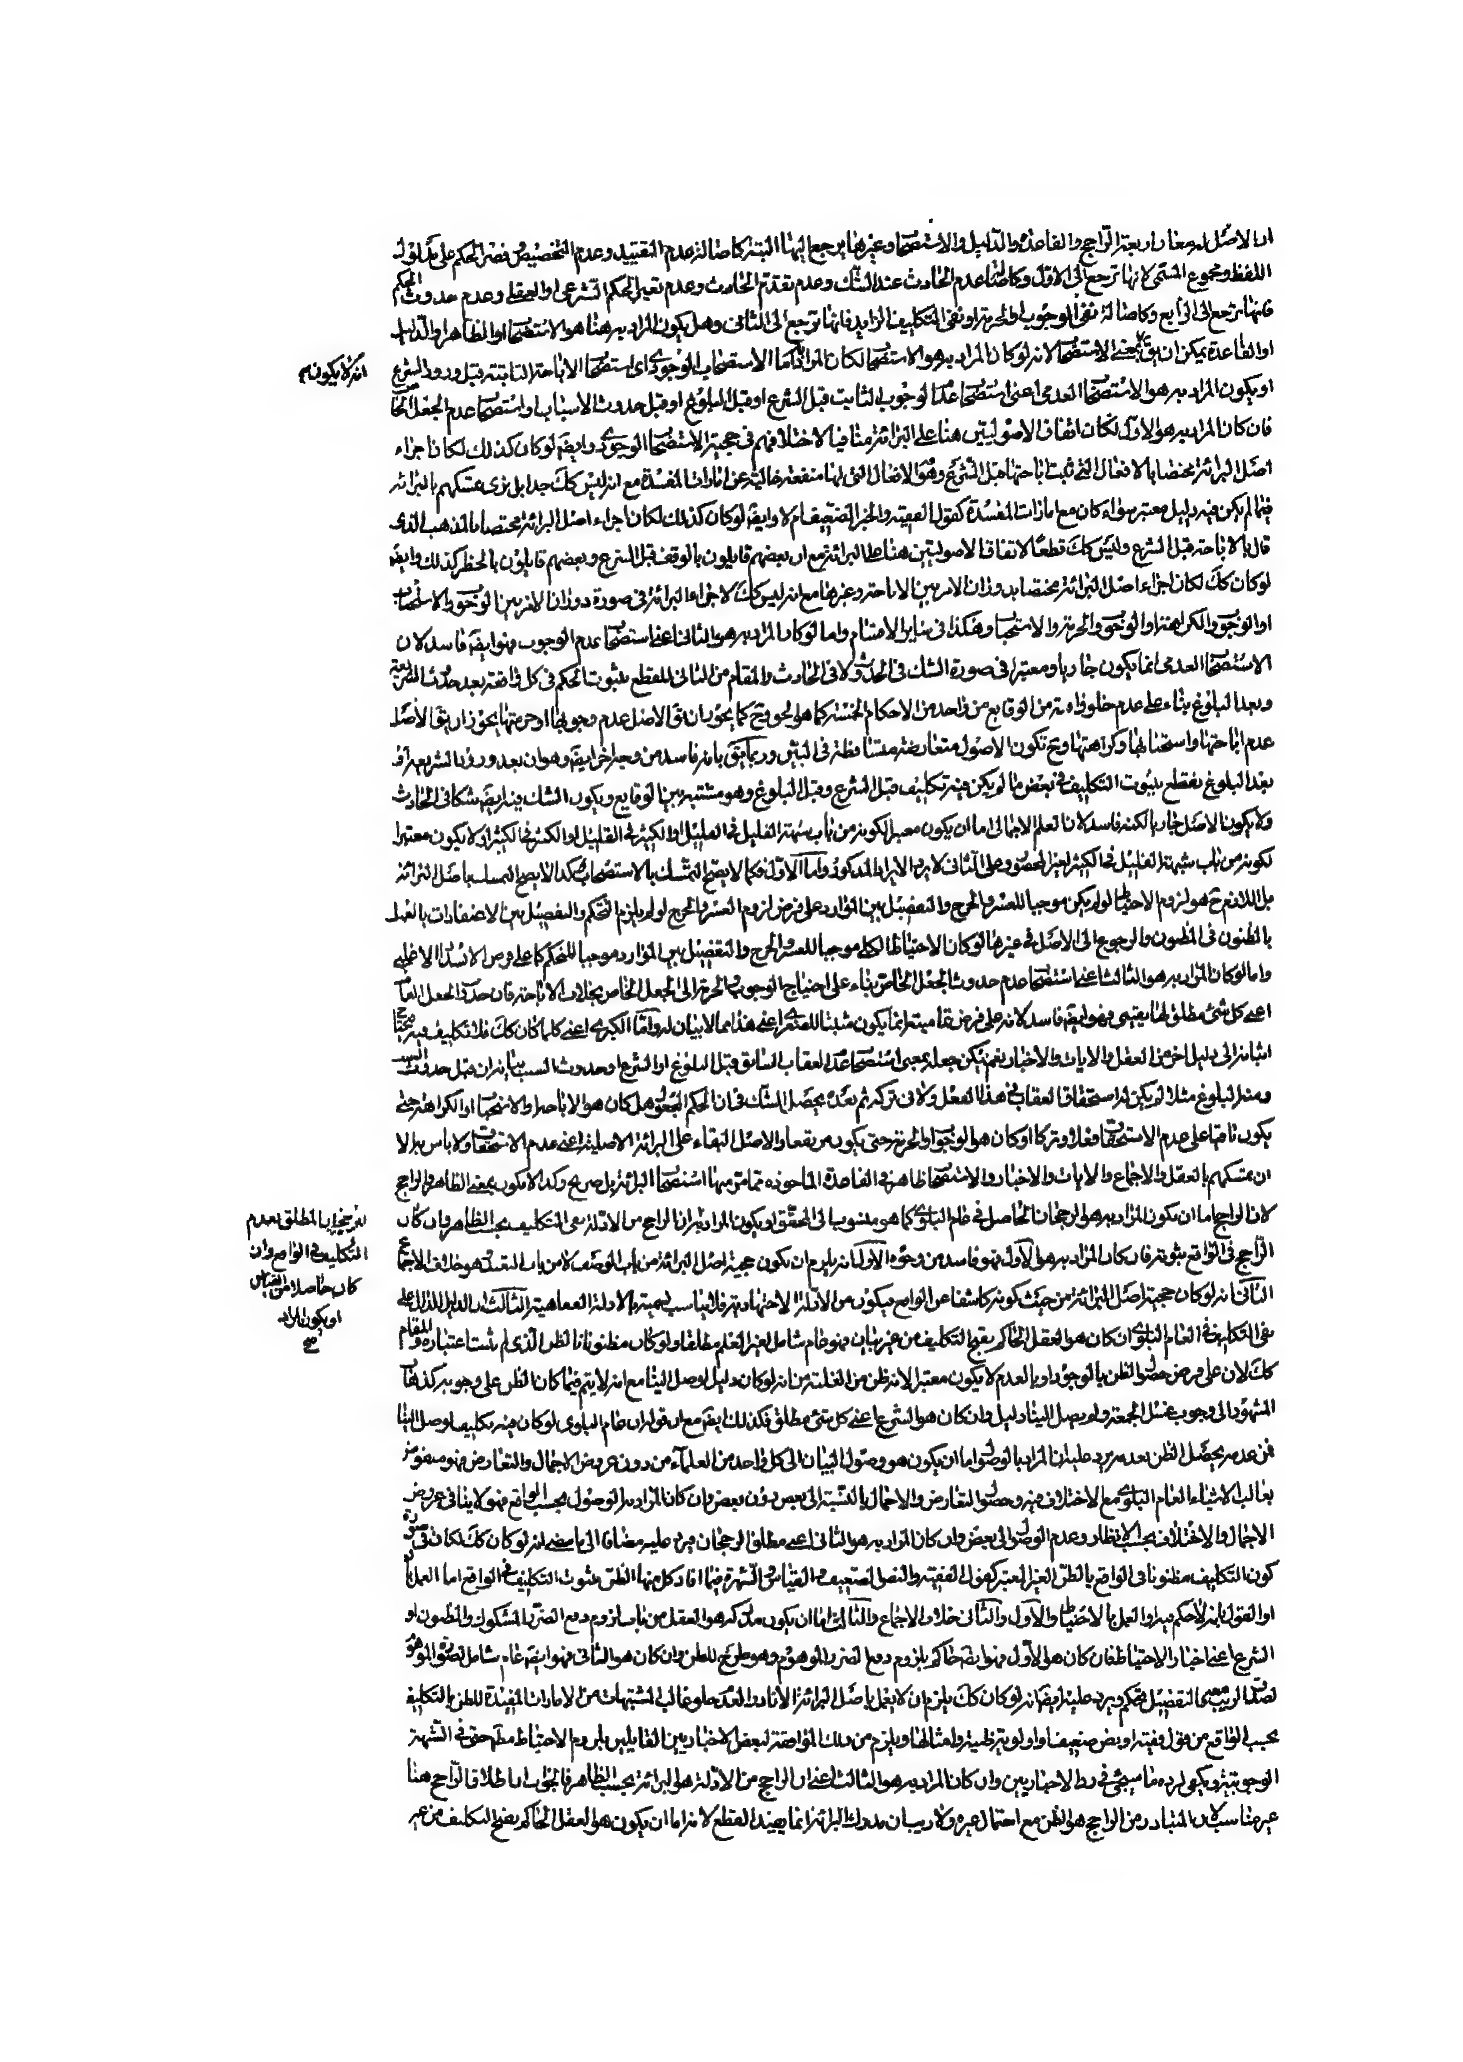 ان الاصل له معان اربعة الراجح والقاعدة والدليل والاستصحاب وغيرها يرجع اليها البتة كاصالة عدم التقييد وعدم التخصيص وقصر الحكم على مدلول
اللفظ ومجموع المسمى لانها ترجع الى الاول وكاصالة عدم الحادث عند الشك وعدم تقدم الحادث وعدم تغير الحكم الشرعي او العقلي وعدم حدوث الحكم
فانها ترجع الى الرابع وكاصالة نفي الوجوب او الحرمة او نفي التكليف الزايد فانها ترجع الى الثاني وهل يكون المراد به هنا هو الاستصحاب او الظاهر او الدليل
او القاعدة يمكن ان يق بمعنى الاستصحاب لانه لو كان المراد به هو الاستصحاب لكان المراد اما الاستصحاب الوجودي اي استصحاب الاباحة الثابتة قبل ورود الشرع
او يكون المراد به هو الاستصحاب العدمي اعني استصحاب عدم الوجوب الثابت قبل الشرع او قبل البلوغ او قبل حدوث الاسباب او استصحاب عدم الجعل الخاص
فان كان المراد به هو الاول لكان اتفاق الاصوليين هنا على البرائة منافيا لاختلافهم في حجية الاستصحاب الوجودي وايضه لو كان كذلك لكان اجراء
اصل البرائة مختصا بالافعال التي ثبت اباحتها قبل الشرع وهو الافعال التي لها منفعة خالية عن امارات المفسدة مع انه ليس كك جدا بل ترى تمسكهم بالبرائة
فيما لم يكن فيه دليل معتبر سواء كان مع امارات المفسدة كقول الفقيه والخبر الضعيف ام لا وايضه لو كان كذلك لكان اجراء اصل البرائة مختصا بالمذهب الذي
قال بالاباحة قبل الشرع وليس كك قطعا لاتفاق الاصوليين هنا على البرائة مع ان بعضهم قايلون بالوقف قبل الشرع وبعضهم قايلون بالحظر كذلك وايضه
لو كان كك لكان اجراء اصل البرائة مختصا بدوران الامر بين الاباحة وغيرها مع انه ليس كك لاجراء البرائة في صورة دوران الامر بين الوجوب والاستحباب
او الوجوب والكراهة او الوجوب والحرمة والاستحباب وهكذا في ساير الاقسام واما لو كان المراد به هو الثاني اعني استصحاب عدم الوجوب فهو ايضه فاسد لان
الاستصحاب العدمي انما يكون جاريا ومعتبرا في صورة الشك في الحدوث لا في الحادث والمقام من الثاني للقطع بثبوت الحكم في كل واقعة بعد حدوث الشريعة
وبعد البلوغ بناء على عدم خلو واقعة من الوقايع من واحد من الاحكام الخمسة كما هو الحق وح كما يجوز ان يق الاصل عدم وجوبها او حرمتها يجوز ان يق الاصل
عدم اباحتها واستحبابها وكراهتها وح تكون الاصول متعارضة متساقطة في البين وربما يق بانه فاسد من وجه اخر ايضه وهو ان بعد ورود الشريعة او
بعد البلوغ يقطع بثبوت التكليف في بعض ما لم يكن فيه تكليف قبل الشرع وقبل البلوغ وهو مشتبه بين الوقايع ويكون الشك فيه ايضه شكا في الحادث
ولا يكون الاصل جاريا لكنه فاسد لان العلم الاجمالي اما ان يكون معتبرا لكونه من باب شبهة القليل في القليل او الكثير في القليل او الكثير في الكثير او لا يكون معتبرا
لكونه من باب شبهة القليل في الكثير الغير المحصور وعلى الثاني لا يرد الايراد المذكور واما الاول فكما لا يصح التمسك بالاستصحاب فكذا لا يصح التمسك باصل البرائة
بل اللازم ح هو لزوم الاحتياط لو لم يكن موجبا للعسر والحرج والتفصيل بين الموارد على فرض لزوم العسر والحرج لو لم يلزم التحكم والتفصيل بين الاعتقادات بالعمل
بالظنون في المظنون والرجوع الى الاصل في غيرها لو كان الاحتياط الكلي موجبا للعسر والحرج والتفصيل بين الموارد موجبا للتحكم كما على فرض الانسداد الاغلبي
واما لو كان المراد به هو الثالث اعني استصحاب عدم حدوث الجعل الخاص بناء على احتياج الوجوب والحرمة الى الجعل الخاص بخلاف الاباحة فان حدوث الجعل العام
اعني كل شيء مطلق لها يقيني فهو ايضه فاسد لانه على فرض تماميته انما يكون مثبتا للصغرى اعني هذا مما لا بيان له واما الكبرى اعني كلما كان كك فلا تكليف فيه فيحتاج
اثباته الى دليل اخر من العقل والايات والاخبار نعم يمكن جعله بمعنى استصحاب عدم العقاب السابق قبل البلوغ او الشرع او حدوث السبب بيانه ان قبل حدوث السبب
ومثل البلوغ مثلا لم يكن له استحقاق العقاب في هذا الفعل ولا في تركه ثم بعده يحصل الشك في ان الحكم المجعول هل كان هو الاباحة او الاستحباب او الكراهة حتى
يكون باقيا على عدم الاستحقاق فعلا وتركا او كان هو الوجوب او الحرمة حتى يكون مرتفعا والاصل البقاء على البرائة الاصلية اعني عدم الاستحقاق ولا باس به الا
ان تمسكهم بالعقل والاجماع والايات والاخبار والاستصحاب ظاهر في القاعدة الماخوذة مما مر منها استصحاب البرائة بل صريح وكذا لا يكون بمعنى الظاهر والراجح
لان الراجح اما ان يكون المراد به هو الرجحان الحاصل في عام البلوى كما هو منسوب الى المحقق او يكون المراد به ان الراجح من الادلة نفي التكليف بحسب الظاهر وان كان
الراجح في الواقع ثبوته فان كان المراد به هو الاول فهو فاسد من وجوه الاول انه يلزم ان يكون حجية اصل البرائة من باب الوصف لا من باب التعبد وهو خلاف الاجماع
الثاني انه لو كان حجية اصل البرائة من حيث كونه كاشفا عن الواقع فيكون من الادلة الاجتهادية فلا يناسب تسميته بالادلة الفقاهية الثالث ان الدليل الدال على
نفي التكليف في العام البلوى ان كان هو العقل الحاكم بقبح التكليف من غير بيان فهو عام شامل لغير العلم مطلقا ولو كان مظنونا بالظن الذي لم يثبت اعتباره والمقام
كك لان على فرض حصول الظن بالوجود او بالعدم لا يكون معتبرا لانه ظن من الغلبة من انه لو كان دليل لوصل الينا مع انه لا يتم فيما كان الظن على وجوبه كذهاب
المشهور الى وجوب غسل الجمعة ولم يصل الينا دليل وان كان هو الشرع اعني كل شيء مطلق فكذلك ايضه مع ان قوله ان عام البلوى لو كان فيه تكليف لوصل الينا
فمن عدمه يحصل الظن بعدمه يرد عليه ان المراد بالوصول اما ان يكون هو وصول البيان الى كل واحد من العلماء من دون عروض الاجمال والتعارض فهو منقوض
بغالب الاشياء العام البلوى مع الاختلاف فيه وحصول التعارض والاجمال بالنسبة الى بعض دون بعض وان كان المراد به الوصول بحسب الواقع فهو لا ينافي عروض
الاجمال والاختلاف بحسب الانظار وعدم الوصول الى بعض وان كان المراد به هو الثاني اعني مطلق الرجحان فيرد عليه مضافا الى ما مضى انه لو كان كك لكان في صورة
كون التكليف مظنونا في الواقع بالظن الغير المعتبر كقول الفقيه والنص الضعيف والقياس والشهرة فيما افاد كل منها الظن بثبوت التكليف في الواقع اما العمل به
او القول بانه لا حكم فيه او العمل بالاحتياط والاول والثاني خلاف الاجماع والثالث اما ان يكون مدركه هو العقل من باب لزوم دفع الضرر المشكوك والمظنون او
الشرع اعني اخبار الاحتياط فان كان هو الاول فهو ايضه حاكم بلزوم دفع الضرر الموهوم وهو طرح للظن وان كان هو الثاني فهو ايضه عام شامل لصورة الموهوم
لصدق الريب معه فالتفصيل تحكم ويرد عليه ايضه انه لو كان كك يلزم ان لا يعمل باصل البرائة الا نادرا لعدم خلو غالب المشتبهات من الامارات المفيدة للظن بالتكليف
بحسب الواقع من قول فقيه او نص ضعيف او اولوية ظنية وامثالها ويلزم من ذلك الموافقة لبعض الاخباريين القايلين بلزوم الاحتياط مطلقا حتى في الشبهة
الوجوبية ويكفي لرده ما سيجيء في رد الاخباريين وان كان المراد به هو الثالث اعني ان الراجح من الادلة هو البرائة بحسب الظاهر فالجواب ان اطلاق الراجح هنا
غير مناسب لان المتبادر من الراجح هو الظن مع احتمال غيره ولا ريب ان مدرك البرائة انما يفيد القطع لانه اما ان يكون هو العقل الحاكم بقبح التكليف من غير
التكليف في الواقع وان
او يكون المراد
صح